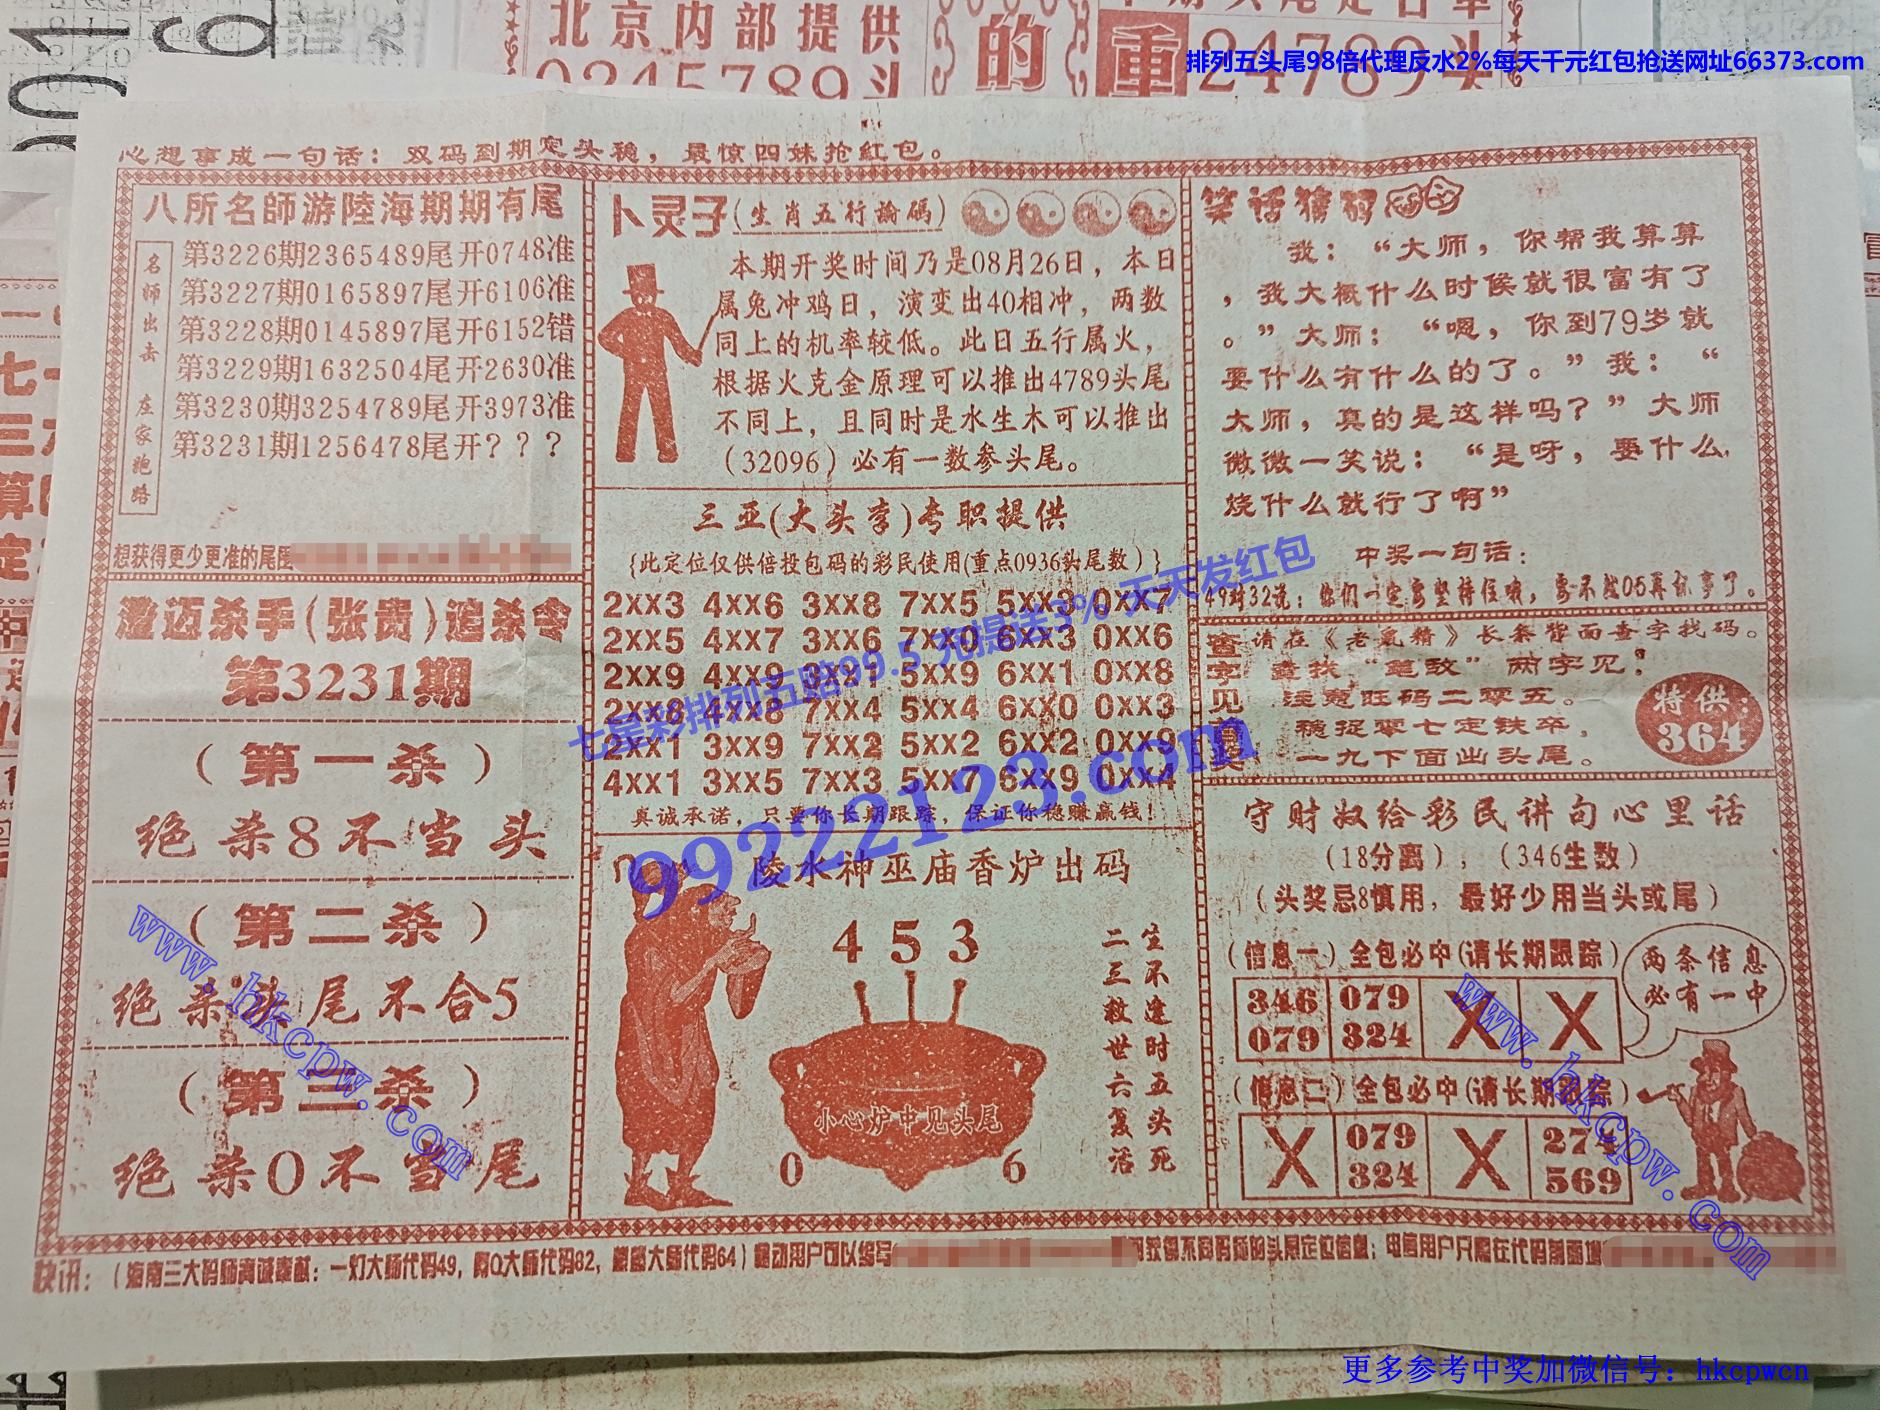 北京内部提供
的
重
24789头
排列五头尾98倍代理反水2%每天千元红包抢送网址66373.com
心想事成一句话：双码到期定头稳，最惊四妹抢红包。
八所名師游陸海期期有尾
名師出击 庄家跑路
第3226期2365489尾开0748准
第3227期0165897尾开6106准
第3228期0145897尾开6152错
第3229期1632504尾开2630准
第3230期3254789尾开3973准
第3231期1256478尾开？？？
想获得更少更准的尾
澄迈杀手(张贵)追杀令
第3231期
（第一杀）
绝杀8不当头
（第二杀）
绝杀头尾不合5
（第三杀）
绝杀0不当尾
卜灵子(生肖五行論碼)
本期开奖时间乃是08月26日，本日
属兔冲鸡日，演变出40相冲，两数
同上的机率较低。此日五行属火，
根据火克金原理可以推出4789头尾
不同上，且同时是水生木可以推出
（32096）必有一数参头尾。
三亚(大头李)专职提供
{此定位仅供倍投包码的彩民使用(重点0936头尾数）}
2xx3 4xx6 3xx8 7xx5 5xx3 0xx7
2xx5 4xx7 3xx6 7xx0 6xx3 0xx6
2xx9 4xx9 3xx1 5xx9 6xx1 0xx8
2xx8 4xx8 7xx4 5xx4 6xx0 0xx3
2xx1 3xx9 7xx2 5xx2 6xx2 0xx9
4xx1 3xx5 7xx3 5xx7 6xx9 0xx4
真诚承诺，只要你长期跟踪，保证你稳赚赢钱！
七星彩排列五赔99.5 充提送3% 天天发红包
99222123.com
陵水神巫庙香炉出码
4 5 3
小心炉中见头尾
0 6
生不逢时五头死
二三救世六复活
笑话猜码
我：“大师，你帮我算算
，我大概什么时候就很富有了
。”大师：“嗯，你到79岁就
要什么有什么的了。”我：“
大师，真的是这样吗？”大师
微微一笑说：“是呀，要什么，
烧什么就行了啊”
中奖一句话：
49对32说：你们一定要坚持住哦，要不然05再
查字见
请在《老鬼精》长条背面查字找码。
两字见：
旺码二零五。
稳捉零七定铁卒，
一九下面出头尾。
特供：
364
守财奴给彩民讲句心里话
（18分离），（346生数）
（头奖忌8慎用，最好少用当头或尾）
（信息一）全包必中(请长期跟踪）
346 079 X X
079 324
两条信息
必有一中
（信息二）全包必中(请长期跟踪）
X 079 X 274
324 569
www.hkcpw.com
www.hkcpw.com
快讯：（海南三大码师真诚奉献：一灯大师代码49，阿Q大师代码82，
大师代码64）移动用户可以编写
不同码师的头尾定位信息；电信用户只需在代码前面
更多参考中奖加微信号：hkcpwcn